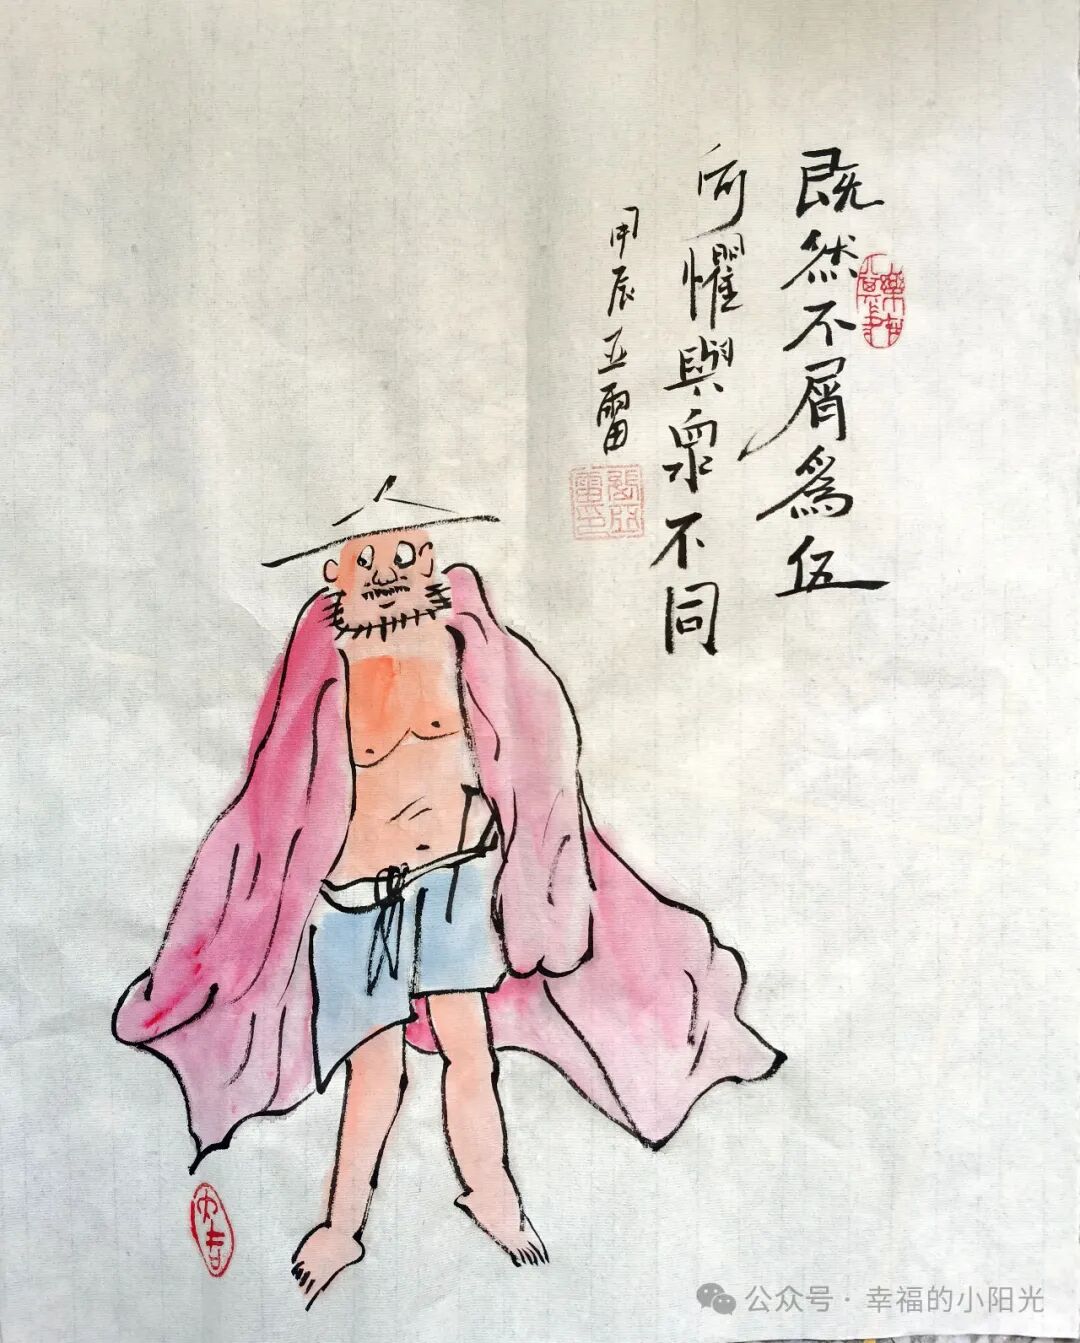 既然不屑爲伍
何懼與衆不同
甲辰亚雷
大吉
公众号·幸福的小阳光